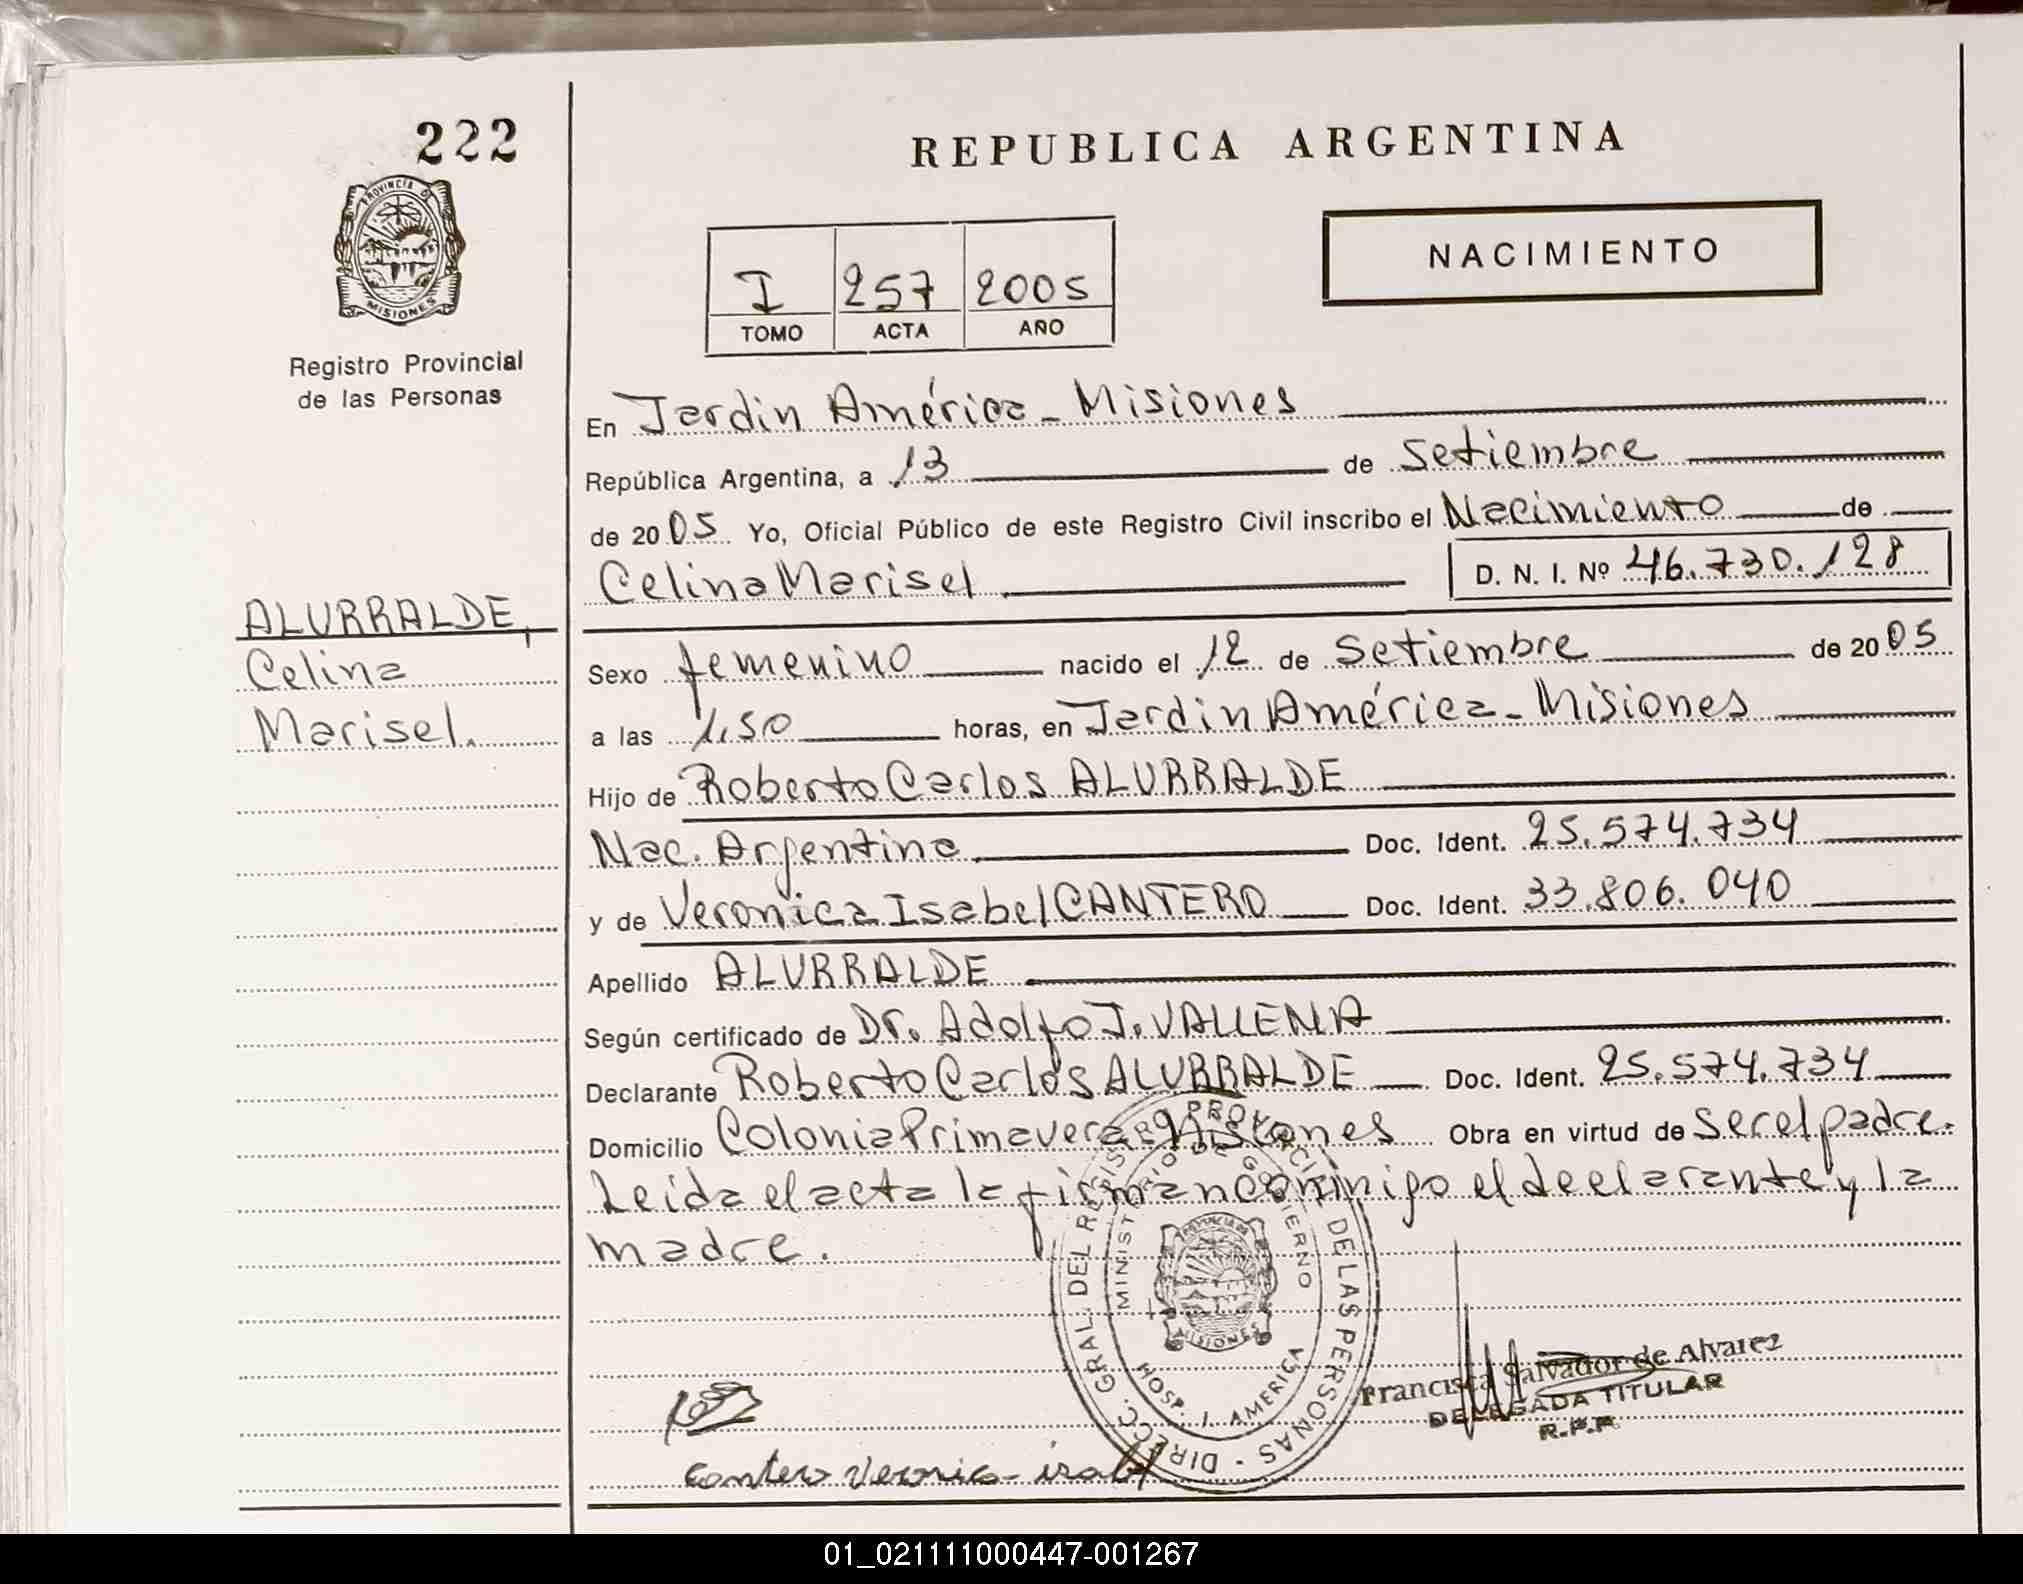 222
REPUBLICA ARGENTINA
PROVINCIA DE
MISIONES
Registro Provincial
de las Personas
I 257 2005
TOMO ACTA AÑO
NACIMIENTO
En Jardin América - Misiones
República Argentina, a 13 de Setiembre
de 2005 Yo, Oficial Público de este Registro Civil inscribo el Nacimiento de
Celina Marisel D. N. I. Nº 46.730.128
ALURRALDE,
Celina
Marisel.
Sexo femenino nacido el 12 de Setiembre de 2005
a las 1,50 horas, en Jardin América - Misiones
Hijo de Roberto Carlos ALURRALDE
Nac. Argentina Doc. Ident. 25.574.734
y de Veronica Isabel CANTERO Doc. Ident. 33.806.040
Apellido ALURRALDE
Según certificado de Dr. Adolfo J. VALLENA
Declarante Roberto Carlos ALURRALDE Doc. Ident. 25.574.734
Domicilio Colonia Primavera - Misiones Obra en virtud de Ser el padre.
Leida el acta la firman conmigo el declarante y la
madre.
DIRECC. GRAL. DEL REGISTRO PROVINCIAL DE LAS PERSONAS
MINISTERIO DE GOBIERNO
PROVINCIA DE
MISIONES
HOSP. J. AMERICA
Francisca Salvador de Alvarez
DELEGADA TITULAR
R.P.P.
cantero veronica isabel
01_021111000447-001267